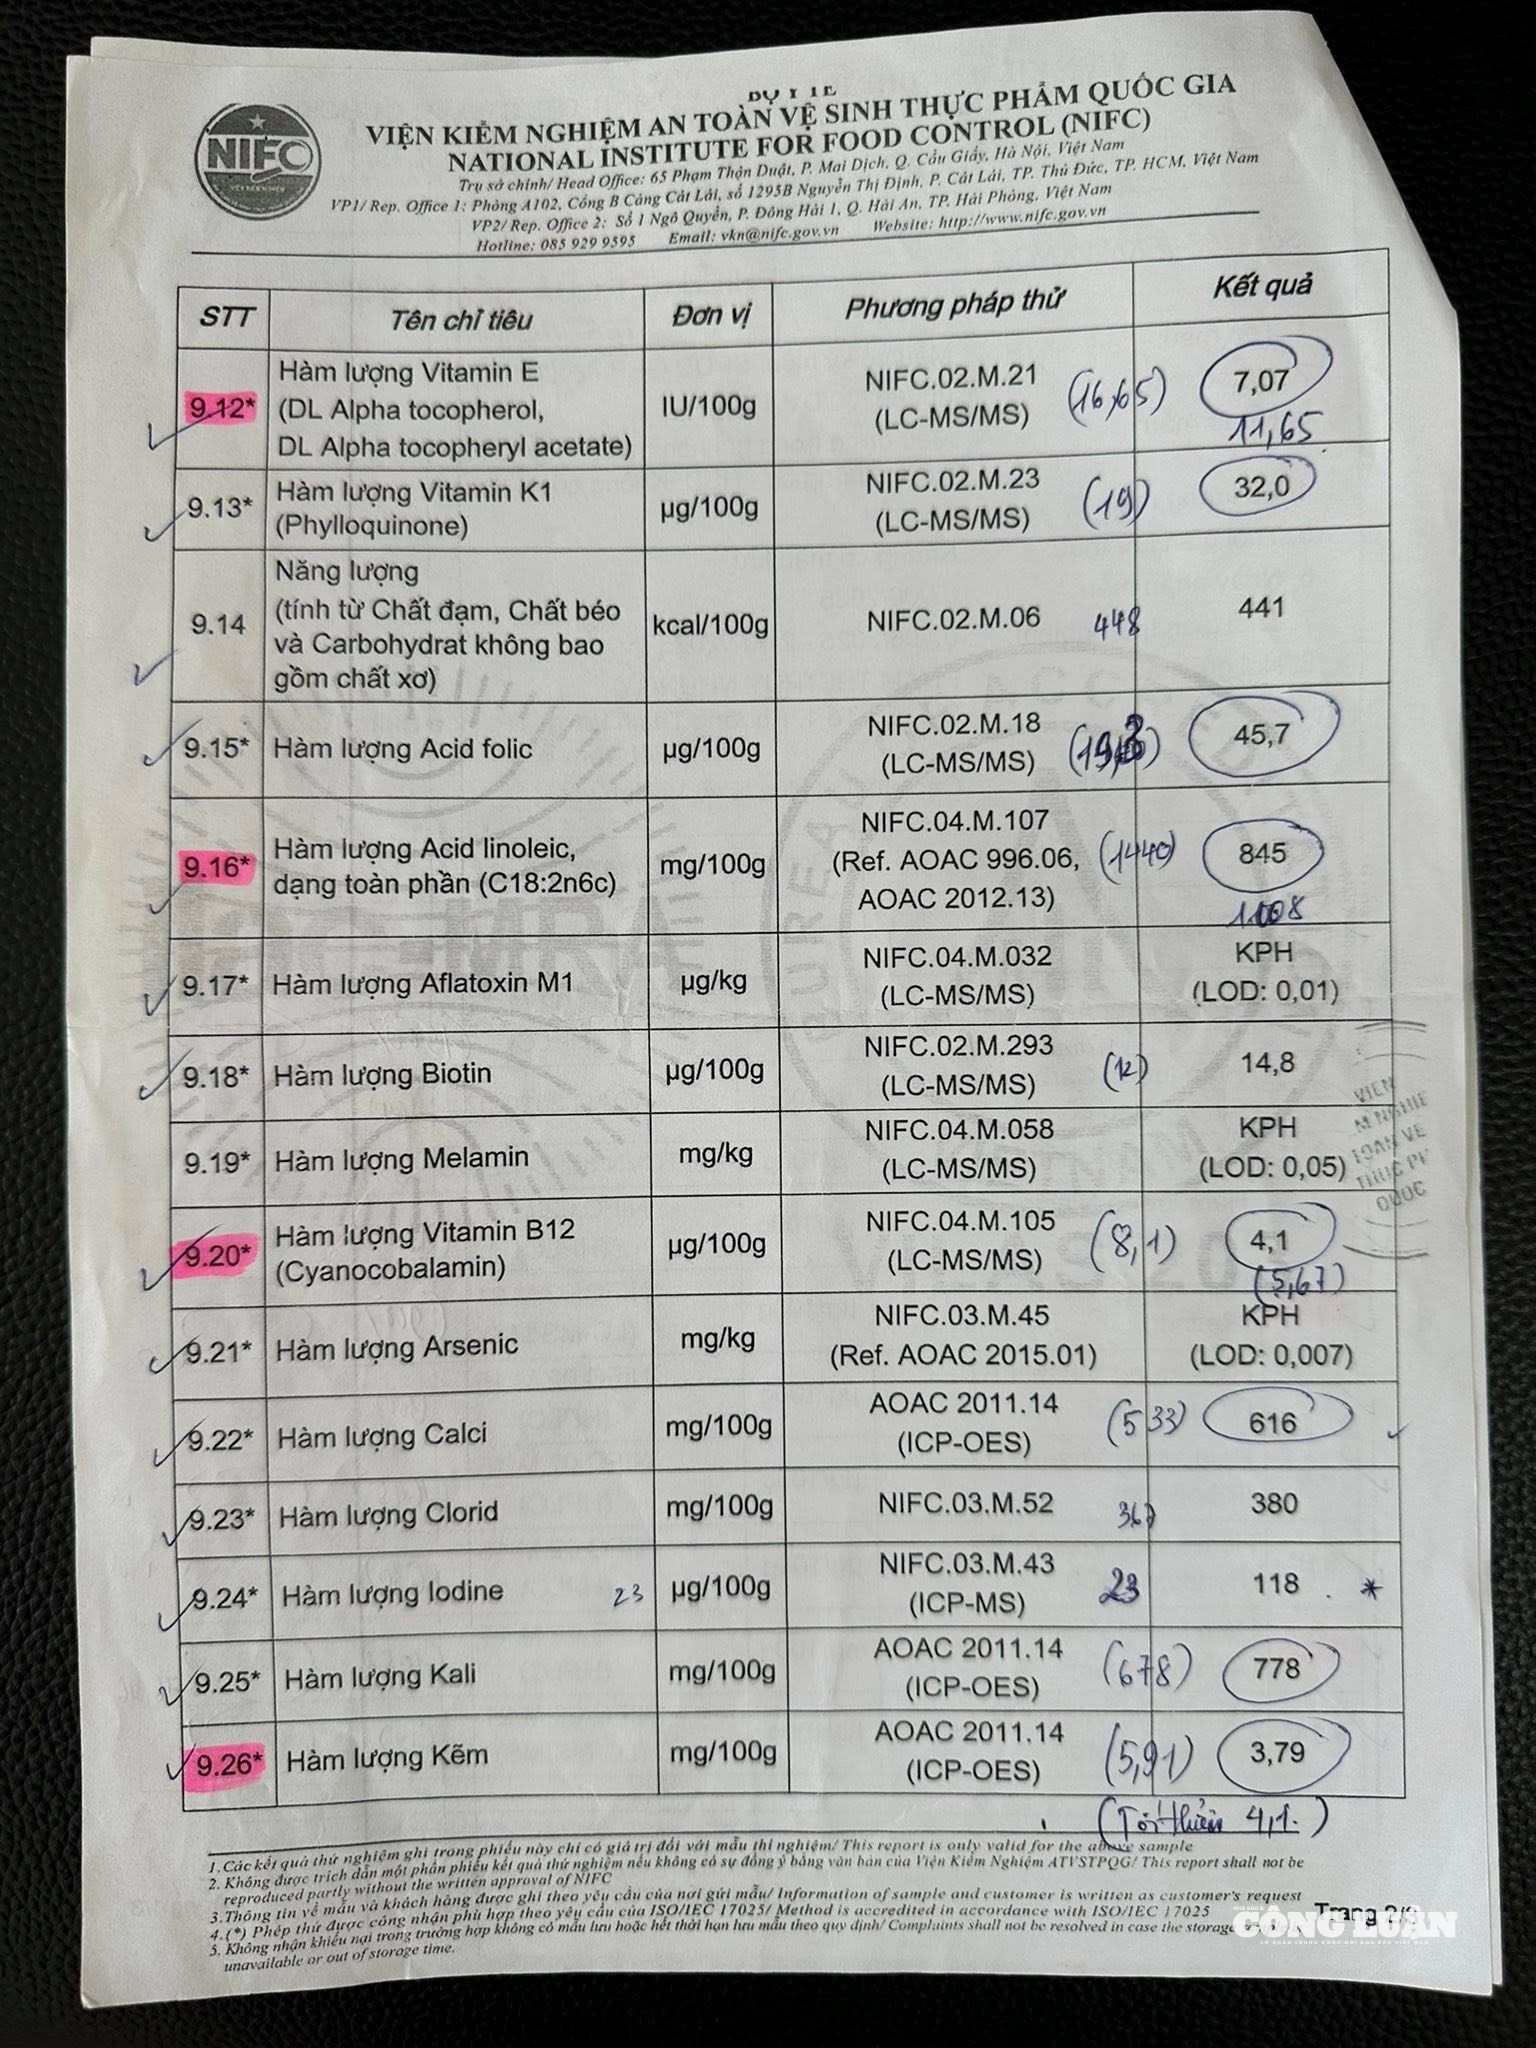 BỘ Y TẾ
VIỆN KIỂM NGHIỆM AN TOÀN VỆ SINH THỰC PHẨM QUỐC GIA
NATIONAL INSTITUTE FOR FOOD CONTROL (NIFC)
NIFC
Trụ sở chính/ Head Office: 65 Phạm Thận Duật, P. Mai Dịch, Q. Cầu Giấy, Hà Nội, Việt Nam
VP1/ Rep. Office 1: Phòng A102, Cổng B Cảng Cát Lái, số 1295B Nguyễn Thị Định, P. Cát Lái, TP. Thủ Đức, TP. HCM, Việt Nam
VP2/ Rep. Office 2: Số 1 Ngô Quyền, P. Đông Hải 1, Q. Hải An, TP. Hải Phòng, Việt Nam
Hotline: 085 929 9595 Email: vkn@nifc.gov.vn Website: http://www.nifc.gov.vn
STT Tên chỉ tiêu Đơn vị Phương pháp thử Kết quả
9.12* Hàm lượng Vitamin E
(DL Alpha tocopherol,
DL Alpha tocopheryl acetate) IU/100g NIFC.02.M.21
(LC-MS/MS) (16,65) 7,07
11,65
9.13* Hàm lượng Vitamin K1
(Phylloquinone) µg/100g NIFC.02.M.23
(LC-MS/MS) (19) 32,0
9.14 Năng lượng
(tính từ Chất đạm, Chất béo
và Carbohydrat không bao
gồm chất xơ) kcal/100g NIFC.02.M.06 448 441
9.15* Hàm lượng Acid folic µg/100g NIFC.02.M.18
(LC-MS/MS) 45,7
9.16* Hàm lượng Acid linoleic,
dạng toàn phần (C18:2n6c) mg/100g NIFC.04.M.107
(Ref. AOAC 996.06,
AOAC 2012.13) (1440) 845
1108
9.17* Hàm lượng Aflatoxin M1 µg/kg NIFC.04.M.032
(LC-MS/MS) KPH
(LOD: 0,01)
9.18* Hàm lượng Biotin µg/100g NIFC.02.M.293
(LC-MS/MS) (12) 14,8
9.19* Hàm lượng Melamin mg/kg NIFC.04.M.058
(LC-MS/MS) KPH
(LOD: 0,05)
9.20* Hàm lượng Vitamin B12
(Cyanocobalamin) µg/100g NIFC.04.M.105
(LC-MS/MS) (8,1) 4,1
(5,67)
9.21* Hàm lượng Arsenic mg/kg NIFC.03.M.45
(Ref. AOAC 2015.01) KPH
(LOD: 0,007)
9.22* Hàm lượng Calci mg/100g AOAC 2011.14
(ICP-OES) (533) 616
9.23* Hàm lượng Clorid mg/100g NIFC.03.M.52 367 380
9.24* Hàm lượng Iodine 23 µg/100g NIFC.03.M.43
(ICP-MS) 23 118 *
9.25* Hàm lượng Kali mg/100g AOAC 2011.14
(ICP-OES) (678) 778
9.26* Hàm lượng Kẽm mg/100g AOAC 2011.14
(ICP-OES) (5,91) 3,79
(Tối thiểu 4,1.)
1. Các kết quả thử nghiệm ghi trong phiếu này chỉ có giá trị đối với mẫu thí nghiệm/ This report is only valid for the above sample
2. Không được trích dẫn một phần phiếu kết quả thử nghiệm nếu không có sự đồng ý bằng văn bản của Viện Kiểm Nghiệm ATVSTPQG/ This report shall not be
reproduced partly without the written approval of NIFC
3. Thông tin về mẫu và khách hàng được ghi theo yêu cầu của nơi gửi mẫu/ Information of sample and customer is written as customer's request
4. (*) Phép thử được công nhận phù hợp theo yêu cầu của ISO/IEC 17025/ Method is accredited in accordance with ISO/IEC 17025
5. Không nhận khiếu nại trong trường hợp không có mẫu lưu hoặc hết thời hạn lưu mẫu theo quy định/ Complaints shall not be resolved in case the storage
unavailable or out of storage time.
Trang 2/
CÔNG LUẬN